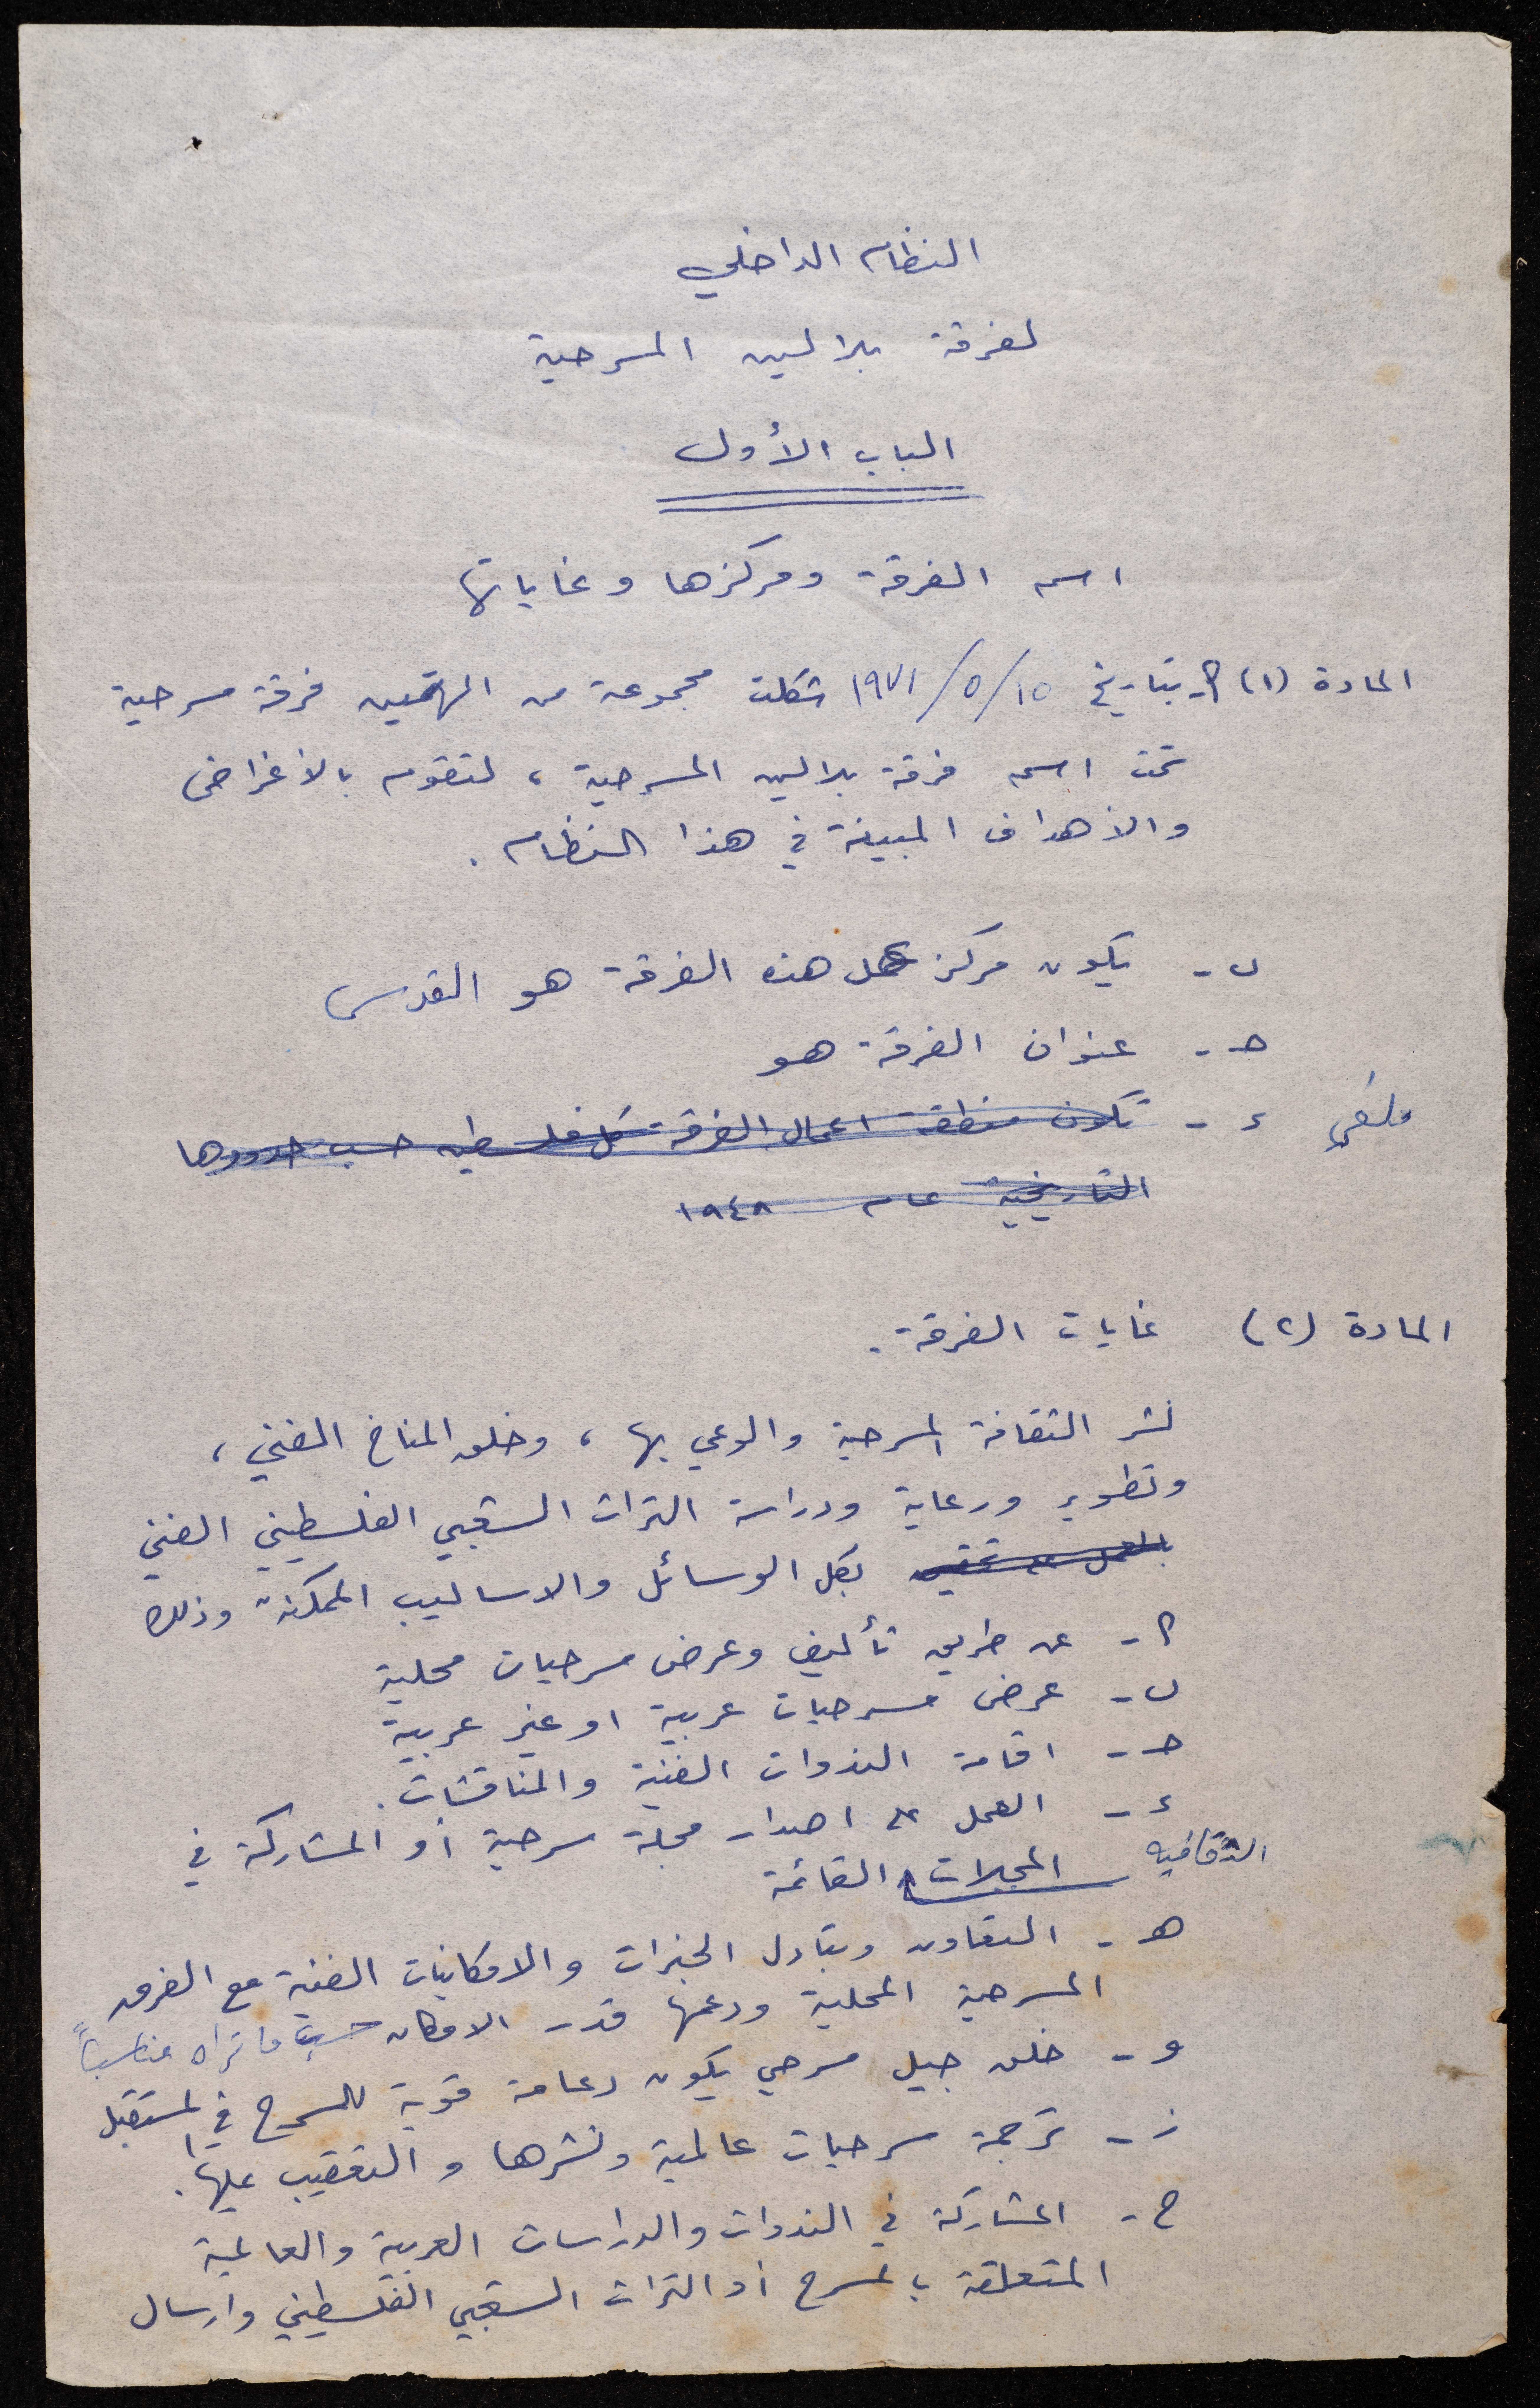 النظام الداخلي
لفرقة بلالين المسرحية
الباب الأول
اسم الفرقة ومركزها وغاياتها
المادة (١) أ- بتاريخ ١٥/٥/١٩٧١ شكلت مجموعة من المهتمين فرقة مسرحية
تحت اسم فرقة بلالين المسرحية، لتقوم بالأغراض
والأهداف المبينة في هذا النظام.
ب- يكون مركز عمل هذه الفرقة هو القدس
ج- عنوان الفرقة هو
ملغي د- تكون منطقة اعمال الفرقة كل فلسطين حسب حدودها
التاريخية عام ١٩٤٨
المادة (٢) غايات الفرقة.
نشر الثقافة المسرحية والوعي بها، وخلق المناخ الفني،
وتطوير ورعاية ودراسة التراث الشعبي الفلسطيني الفني
بكل الوسائل والاساليب الممكنة وذلك
أ- عن طريق تأليف وعرض مسرحيات محلية
ب- عرض مسرحيات عربية او غير عربية
ج- اقامة الندوات الفنية والمناقشات.
د- العمل على اصدار مجلة مسرحية أو المشاركة في
المجلات الثقافيه القائمة
هـ- التعاون وتبادل الخبرات والامكانيات الفنية مع الفرق
المسرحية المحلية ودعمها قدر الامكان حسب ما تراه مناسباً
و- خلق جيل مسرحي يكون دعامة قوية للمسرح في المستقبل
ز- ترجمة مسرحيات عالمية ونشرها و التعقيب عليها.
ح- المشاركة في الندوات والدراسات العربية والعالمية
المتعلقة بالمسرح أو التراث الشعبي الفلسطيني وارسال